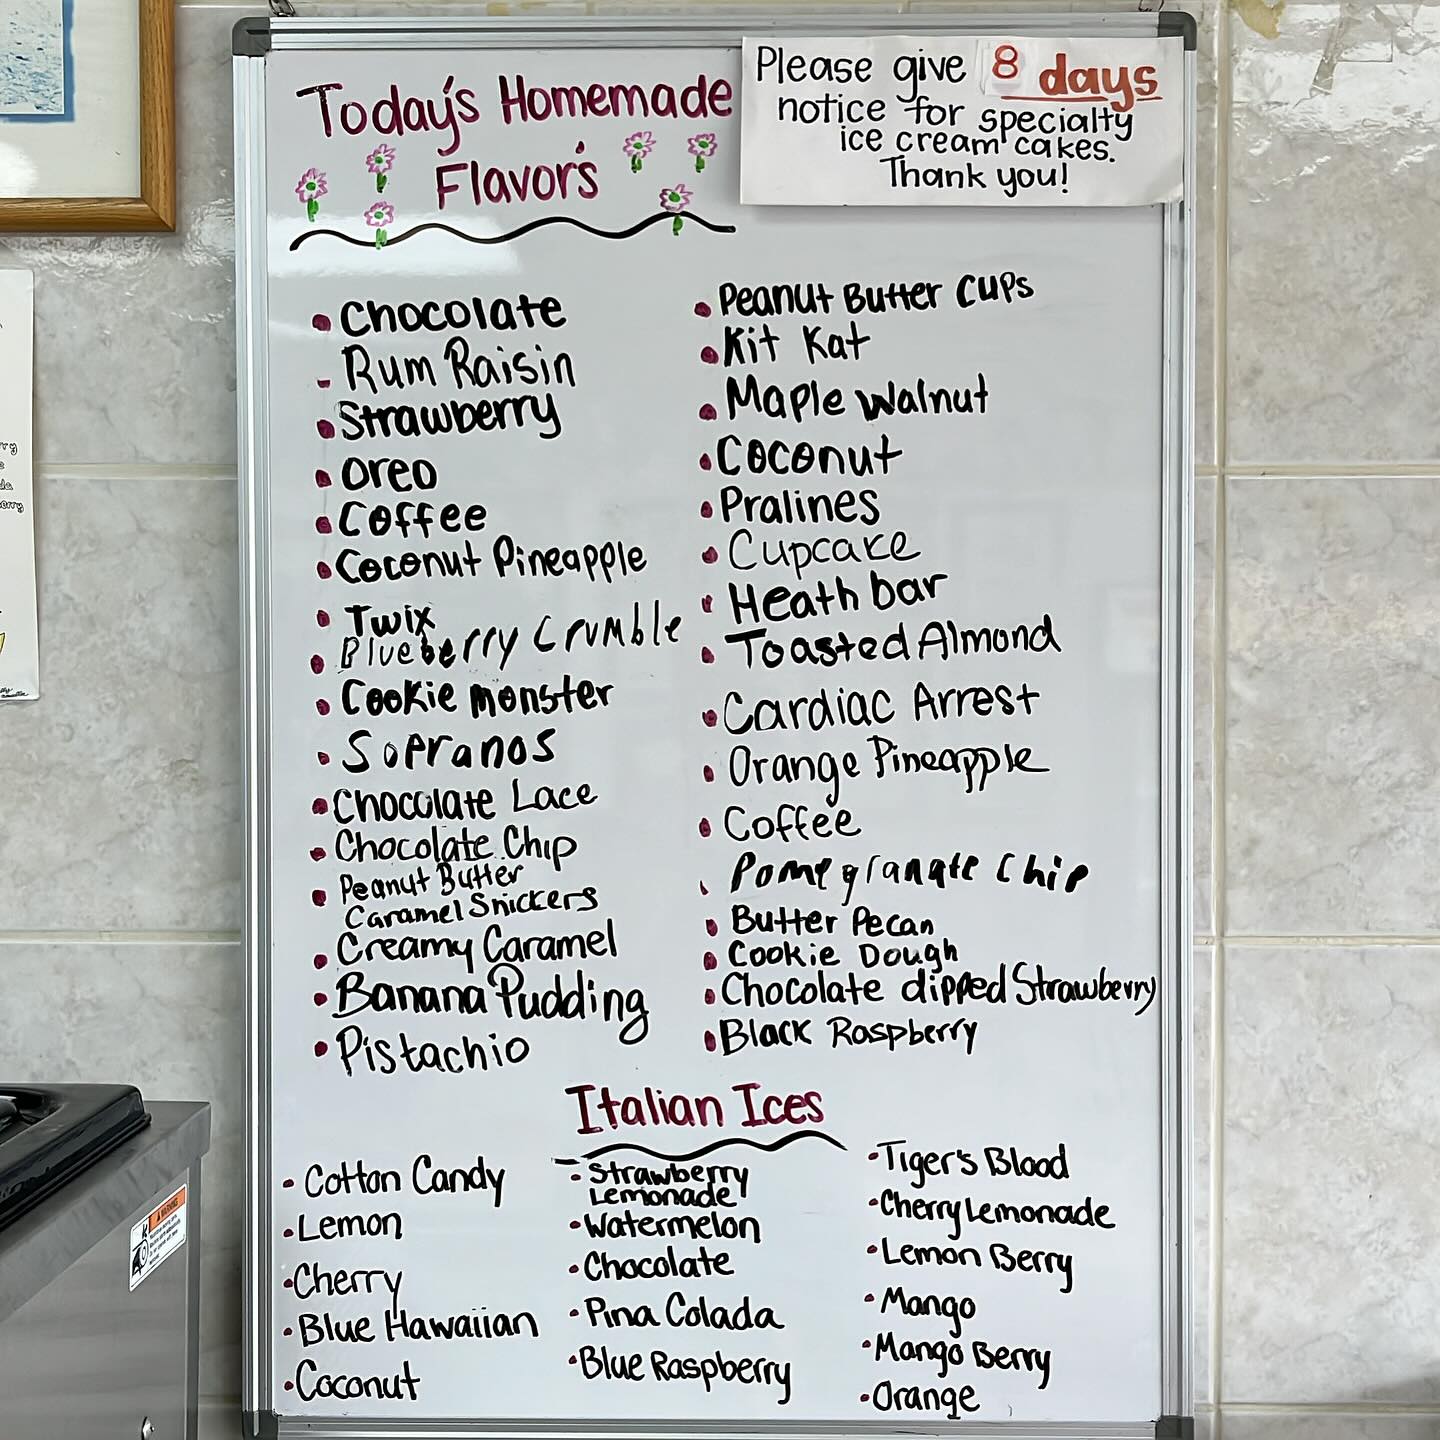 Today's Homemade
Flavor's
Please give 8 days
notice for specialty
ice cream cakes.
Thank you!
Chocolate
Rum Raisin
Strawberry
Oreo
Coffee
Coconut Pineapple
Twix
Blueberry Crumble
Cookie monster
Sopranos
Chocolate Lace
Chocolate Chip
Peanut Butter
Caramel Snickers
Creamy Caramel
Banana Pudding
Pistachio
Peanut Butter Cups
Kit Kat
Maple Walnut
Coconut
Pralines
Cupcake
Heath bar
Toasted Almond
Cardiac Arrest
Orange Pineapple
Coffee
Pomegranate Chip
Butter Pecan
Cookie Dough
Chocolate dipped Strawberry
Black Raspberry
Italian Ices
Cotton Candy
Lemon
Cherry
Blue Hawaiian
Coconut
Strawberry
Lemonade
Watermelon
Chocolate
Pina Colada
Blue Raspberry
Tiger's Blood
Cherry Lemonade
Lemon Berry
Mango
Mango Berry
Orange
WARNING